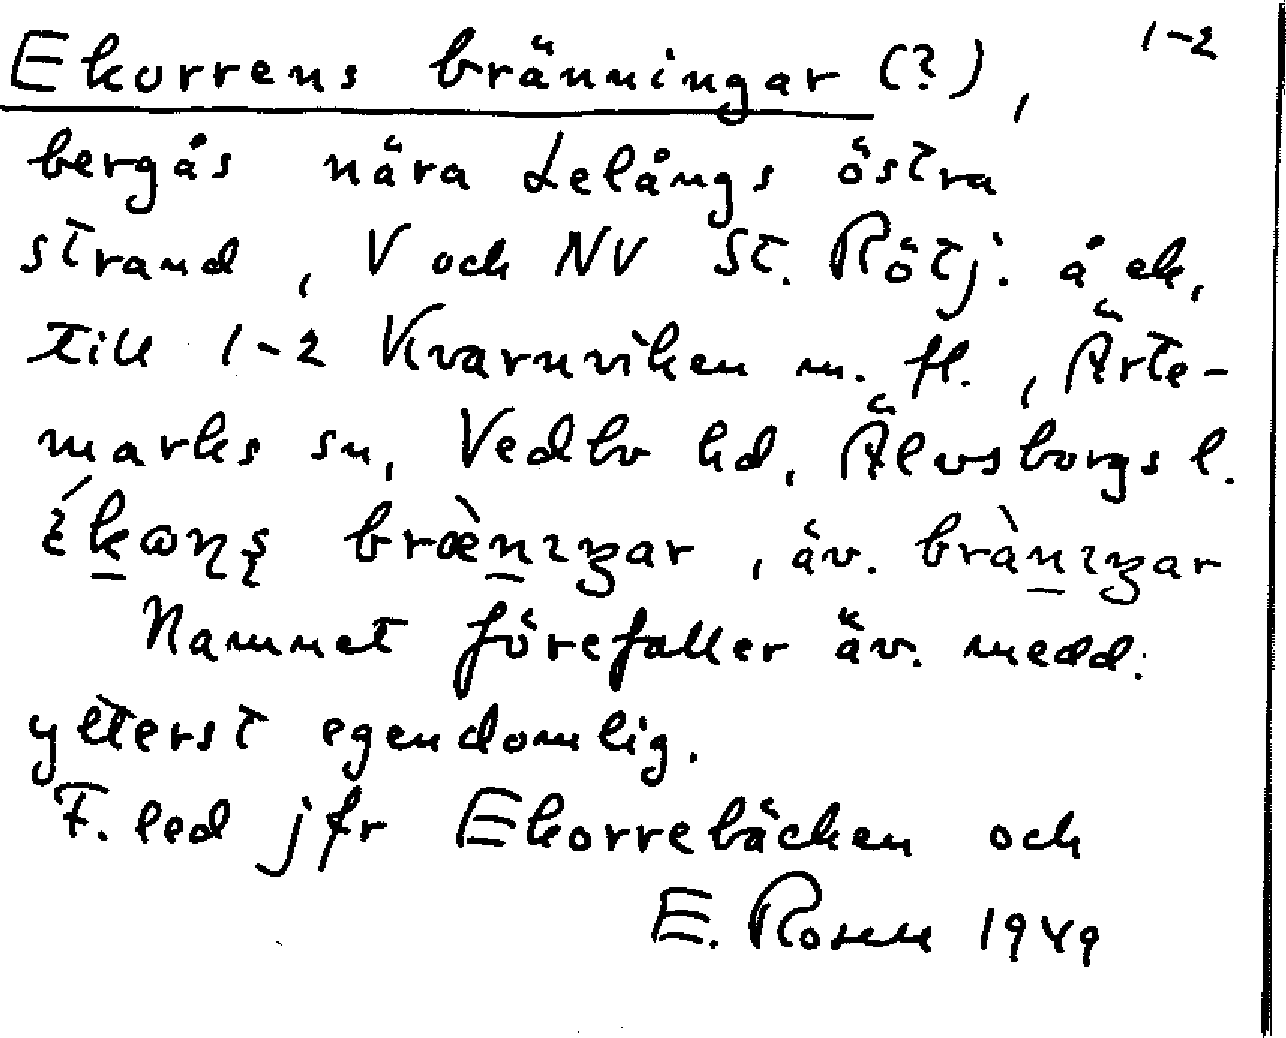 Ekorrens bränningar (?), 1-2
bergås nära Lelångs östra
strand, V och NV St. Rötj. å ek,
till 1-2 Kvarnviken m. fl., Ärte-
marks sn, Vedbo hd, Älvsborgs l.
bræ̀nıŋar, äv. brànıŋar
Namnet förefaller äv. medd.
ytterst egendomlig.
F. led jfr Ekorrebäcken och
E. Rosell 1949